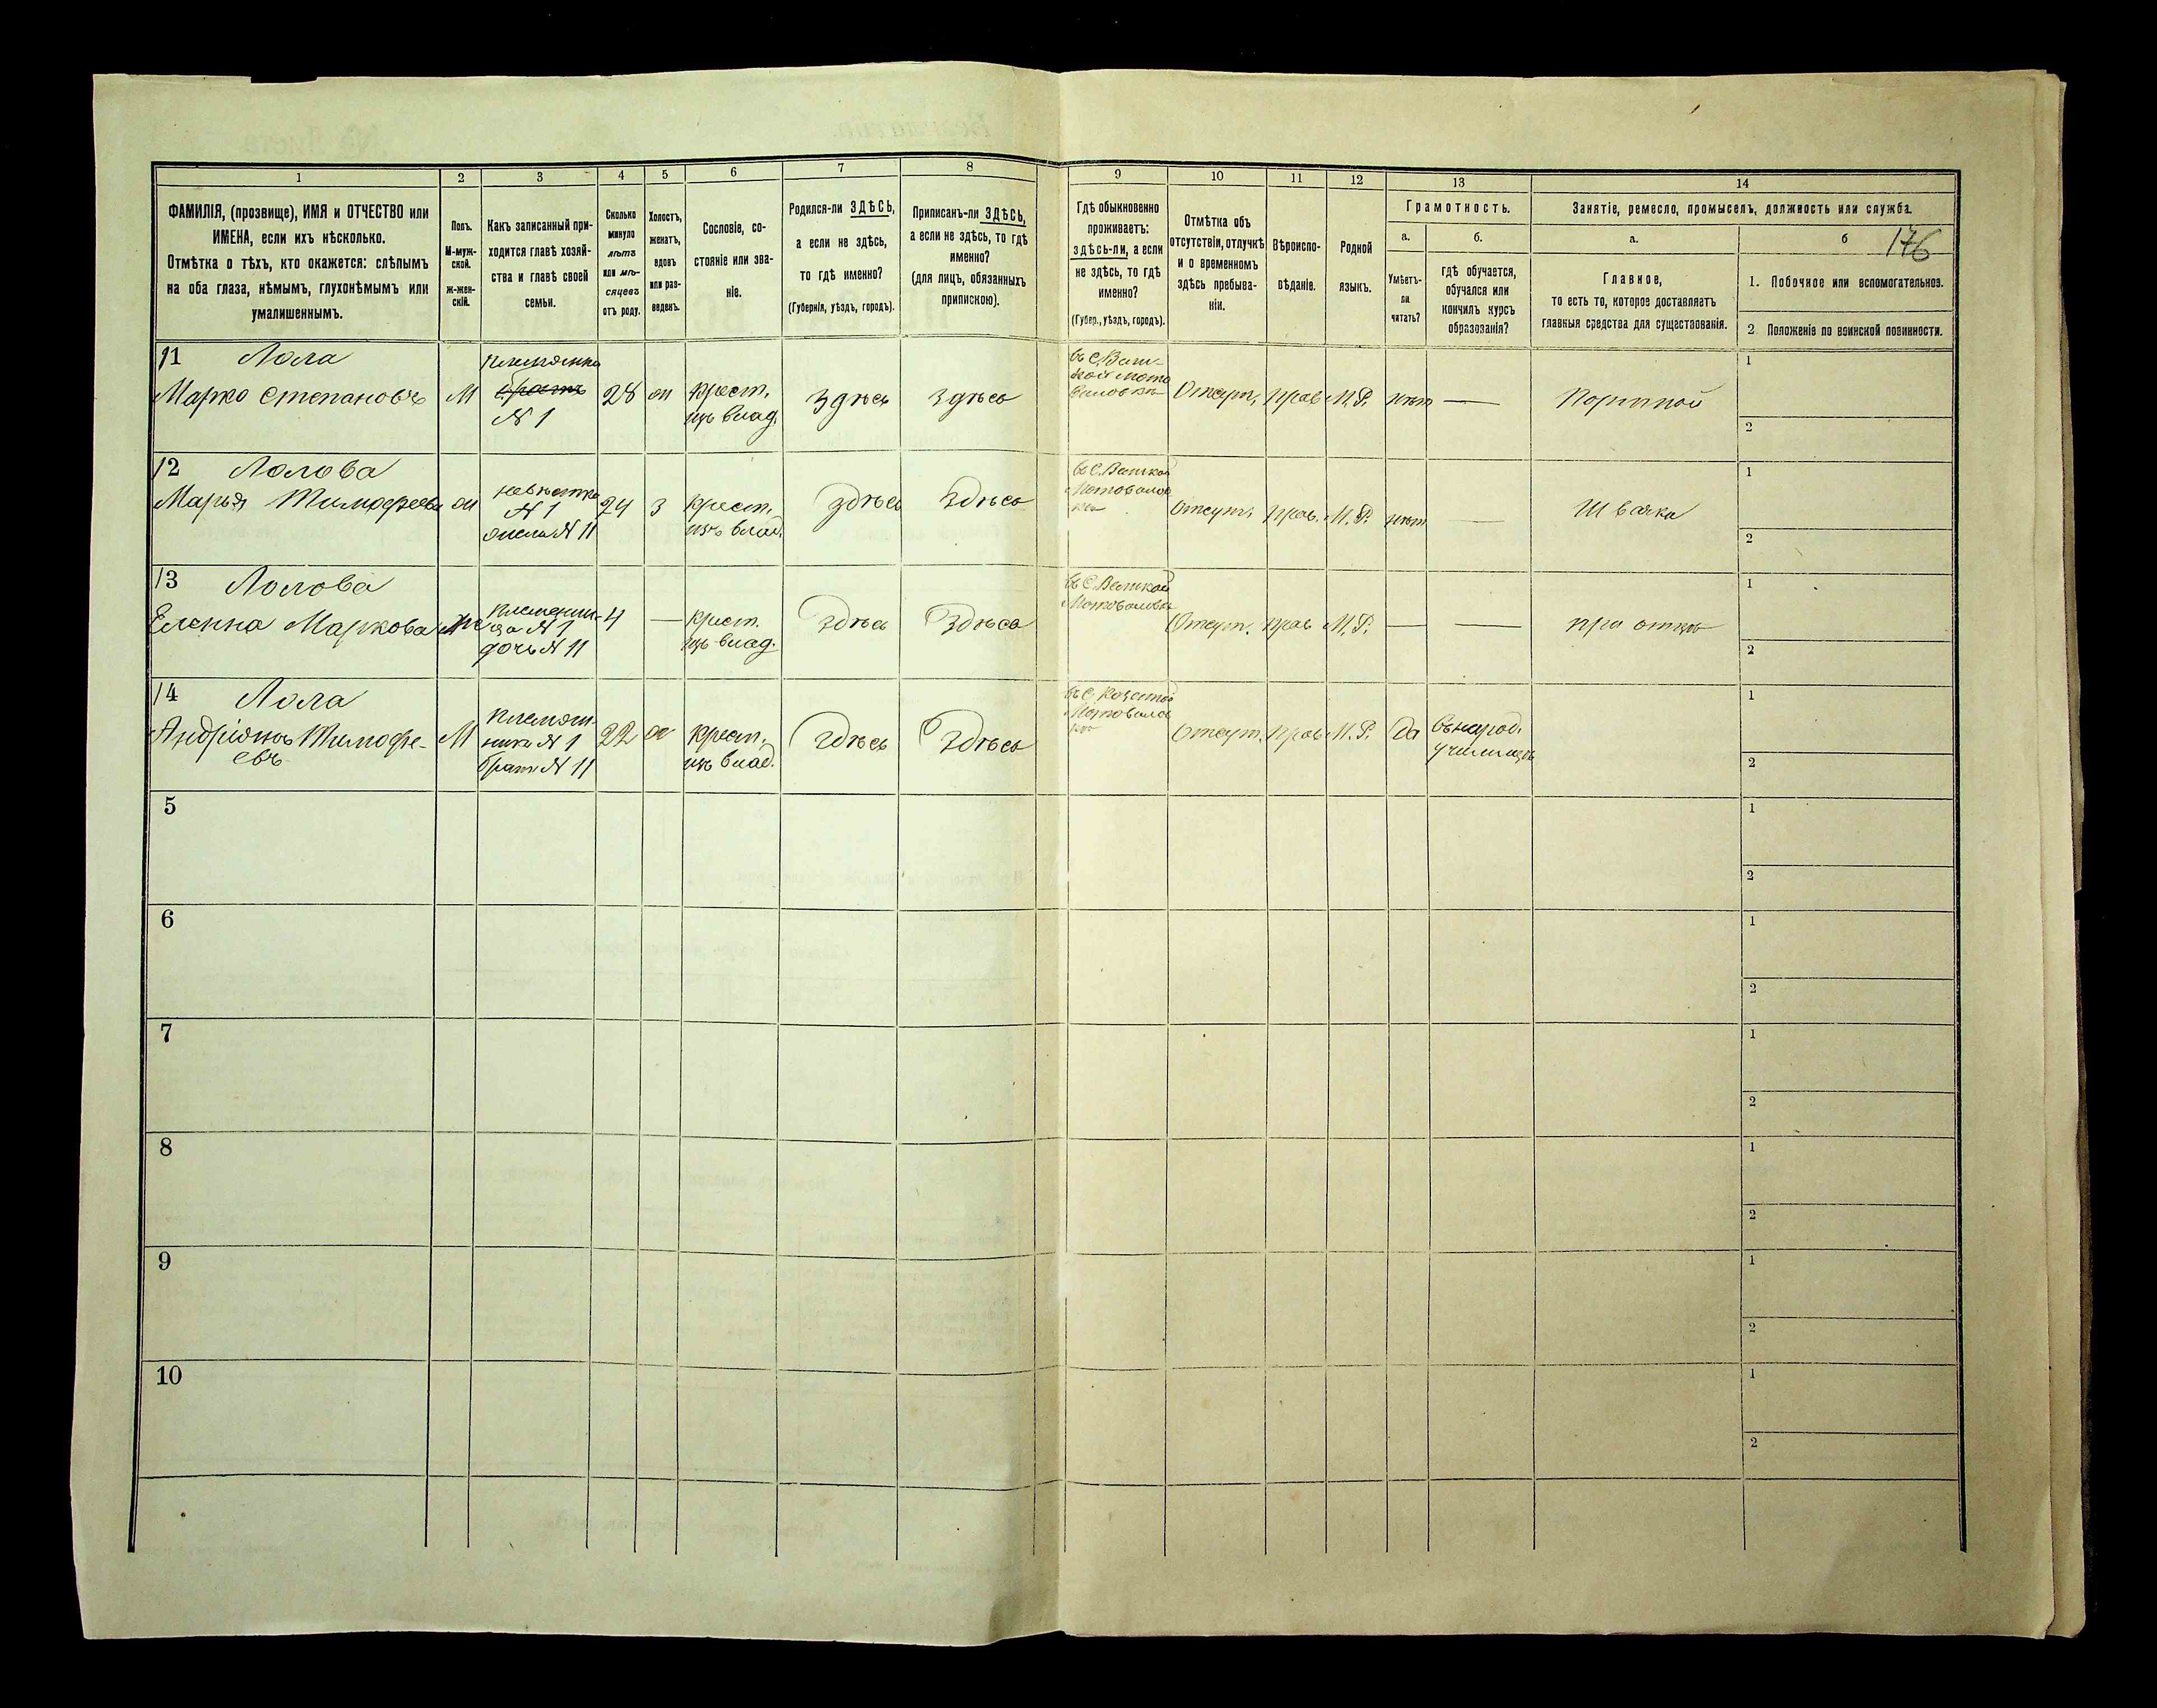 176
1 2 3 4 5 6 7 8 9 10 11 12 13 14
ФАМИЛІЯ, (прозвище), ИМЯ и ОТЧЕСТВО или
ИМЕНА, если ихъ нѣсколько.
Отмѣтка о тѣхъ, кто окажется: слѣпымъ
на оба глаза, нѣмымъ, глухонѣмымъ или
умалишеннымъ.
Полъ.
М-муж-
ской.
Ж-жен-
скій.
Какъ записанный при-
ходится главѣ хозяй-
ства и главѣ своей
семьи.
Сколько
минуло
лѣтъ
или мѣ-
сяцевъ
отъ роду.
Холостъ,
женатъ,
вдовъ
или раз-
веденъ.
Сословіе, со-
стояніе или зва-
ніе.
Родился-ли ЗДѢСЬ,
а если не здѣсь,
то гдѣ именно?
(Губернія, уѣздъ, городъ).
Приписанъ-ли ЗДѢСЬ,
а если не здѣсь, то гдѣ
именно?
(для лицъ, обязанныхъ
припискою).
Гдѣ обыкновенно
проживаетъ:
здѣсь-ли, а если
не здѣсь, то гдѣ
именно?
(Губер., уѣздъ, городъ).
Отмѣтка объ
отсутствіи, отлучкѣ
и о временномъ
здѣсь пребыва-
ніи.
Вѣроиспо-
вѣданіе.
Родной
языкъ.
Грамотность.
а.
Умѣетъ-
ли
читать?
б.
гдѣ обучается,
обучался или
кончилъ курсъ
образованія?
Занятіе, ремесло, промыселъ, должность или служба.
а.
Главное,
то есть то, которое доставляетъ
главныя средства для существованія.
б
1. Побочное или вспомогательное.
2. Положеніе по воинской повинности.
11 Лола
Марко Степановъ
М
племянник
братъ
N 1
28
крест.
изъ влад.
Здѣсь
Здѣсь
Отсут.
прав
М.Р.
нѣт
—
Портной
1
2
12 Лолова
Марья Тимофеева
невѣстка
N 1
жена N 11
24
З
крест.
изъ влад.
Здѣсь
Здѣсь
въ С. Великой
Мотовилов
ке
Отсут.
прав.
М.Р.
нѣт
—
Швачка
1
2
13 Лолова
Еленна Маркова
ж
N 1
дочь N 11
4
—
крест.
изъ влад.
Здѣсь
Здѣсь
въ С. Великой
Мотовиловке
Отсут.
прав
М.Р.
—
—
при отцѣ
1
2
14 Лола
Андріонъ Тимофе-
евъ
М
племян-
никъ N 1
братъ N 11
22
крест.
изъ влад.
Здѣсь
Здѣсь
Отсут.
прав
М.Р.
Да
въ народ.
училищѣ
1
2
5
1
2
6
1
2
7
1
2
8
1
2
9
1
2
10
1
2